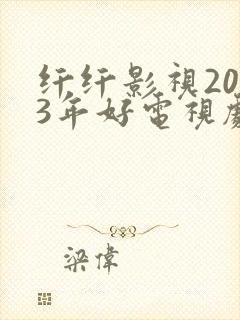 纤纤影視20
3年好電視劇
梁偉